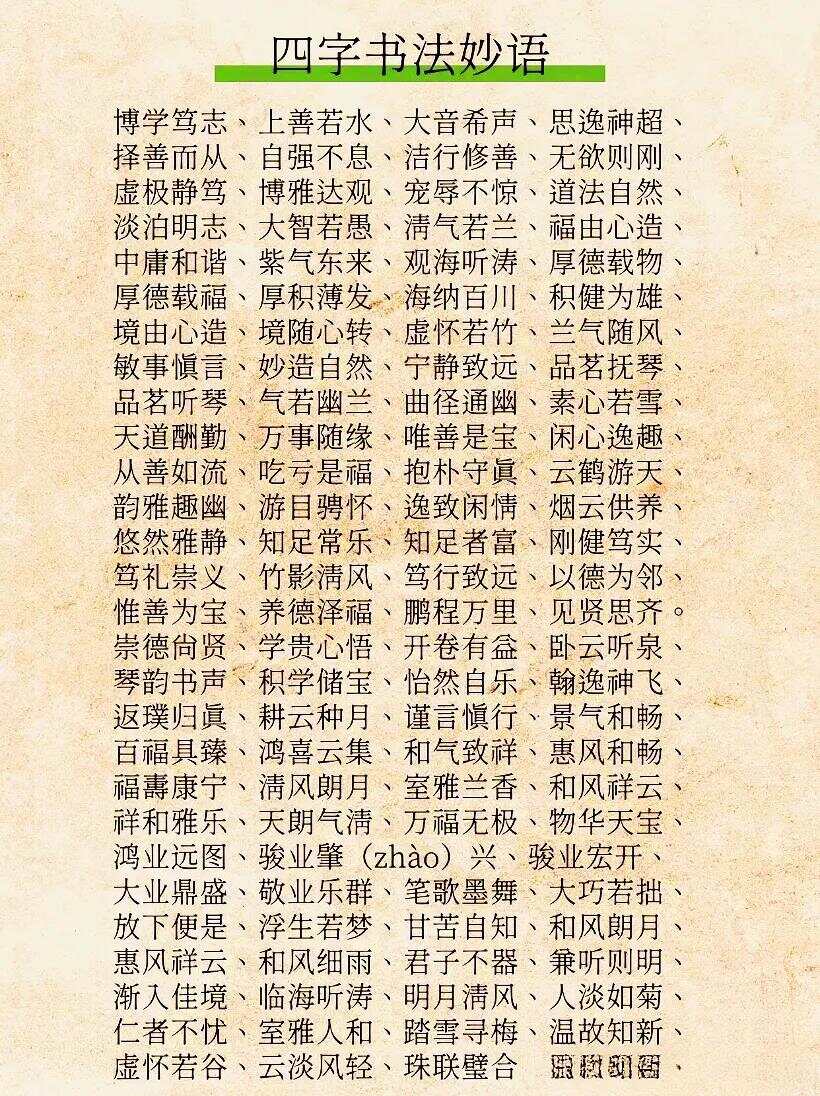 四字书法妙语
博学笃志、上善若水、大音希声、思逸神超、
择善而从、自强不息、洁行修善、无欲则刚、
虚极静笃、博雅达观、宠辱不惊、道法自然、
淡泊明志、大智若愚、淸气若兰、福由心造、
中庸和谐、紫气东来、观海听涛、厚德载物、
厚德载福、厚积薄发、海纳百川、积健为雄、
境由心造、境随心转、虚怀若竹、兰气随风、
敏事愼言、妙造自然、宁静致远、品茗抚琴、
品茗听琴、气若幽兰、曲径通幽、素心若雪、
天道酬勤、万事随缘、唯善是宝、闲心逸趣、
从善如流、吃亏是福、抱朴守眞、云鹤游天、
韵雅趣幽、游目骋怀、逸致闲情、烟云供养、
悠然雅静、知足常乐、知足者富、刚健笃实、
笃礼崇义、竹影淸风、笃行致远、以德为邻、
惟善为宝、养德泽福、鹏程万里、见贤思齐。
崇德尙贤、学贵心悟、开卷有益、卧云听泉、
琴韵书声、积学储宝、怡然自乐、翰逸神飞、
返璞归眞、耕云种月、谨言愼行、景气和畅、
百福具臻、鸿喜云集、和气致祥、惠风和畅、
福壽康宁、淸风朗月、室雅兰香、和风祥云、
祥和雅乐、天朗气淸、万福无极、物华天宝、
鸿业远图、骏业肇（zhào）兴、骏业宏开、
大业鼎盛、敬业乐群、笔歌墨舞、大巧若拙、
放下便是、浮生若梦、甘苦自知、和风朗月、
惠风祥云、和风细雨、君子不器、兼听则明、
渐入佳境、临海听涛、明月淸风、人淡如菊、
仁者不忧、室雅人和、踏雪寻梅、温故知新、
虚怀若谷、云淡风轻、珠联璧合